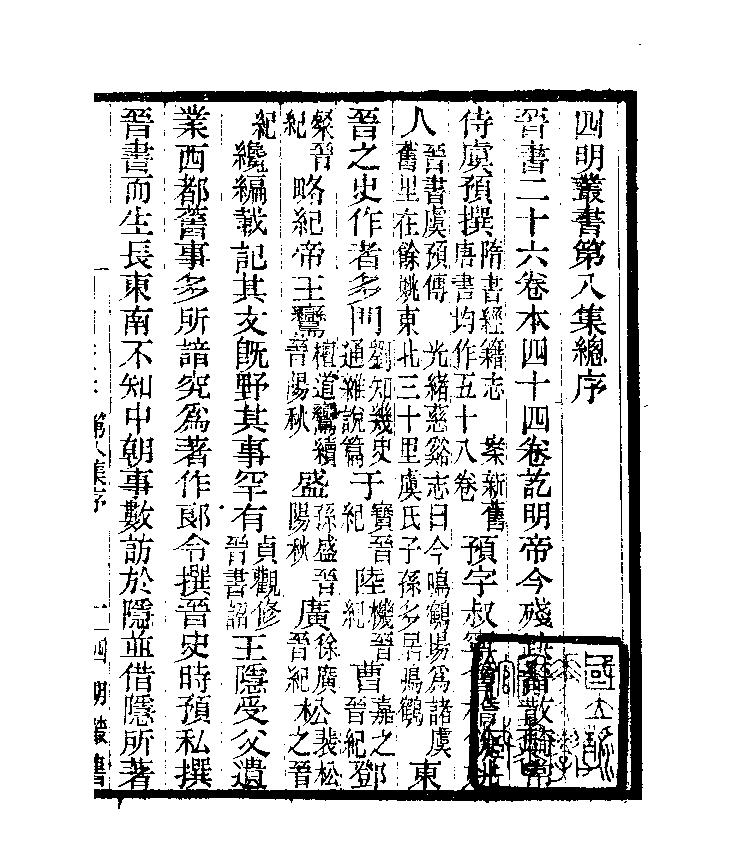 四明叢書第八集總序
晉書二十六卷本四十四卷訖明帝今殘缺晉散騎常
侍虞預撰隋書經籍志　案新舊唐書均作五十八卷預字叔
人晉書虞預傳　光緒慈谿志曰今鳴鶴場爲諸虞舊里在餘姚東北三十里虞氏子孫多居鳴鶴東
晉之史作者多門劉知幾史通雜說篇于寶晉紀陸機晉紀曹嘉之晉紀鄧
粲晉紀略紀帝王鸞檀道鸞續晉陽秋盛孫盛晉陽秋廣徐廣晉紀松之裴松之晉
紀纔編載記其文旣野其事罕有貞觀修晉書詔王隱受父遺
業西都舊事多所諳究爲著作郎令撰晉史時預私撰
晉書而生長東南不知中朝事數訪於隱並借隱所著
第八集序　一　四明叢書